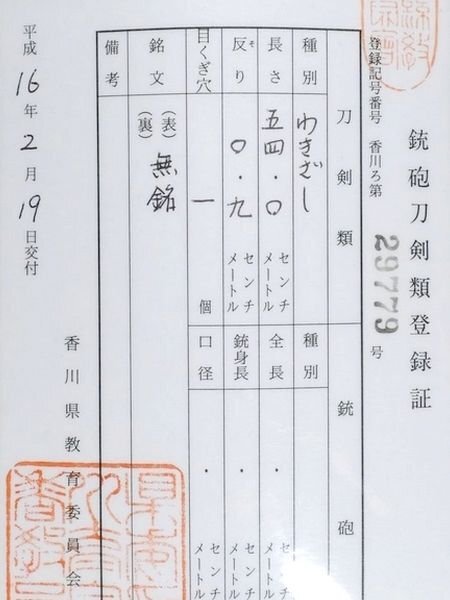 銃砲刀剣類登録証
登録記号番号 香川ろ第 29779 号
刀剣類
銃砲
種別 わきざし
種別
長さ 五四・〇 センチメートル
全長 ・ センチメートル
反り そ 〇・九 センチメートル
銃身長 ・ センチメートル
目くぎ穴 一 個
口径 ・ センチメートル
銘文 (表) 無銘
(裏)
備考
平成16年2月19日交付
香川県教育委員会